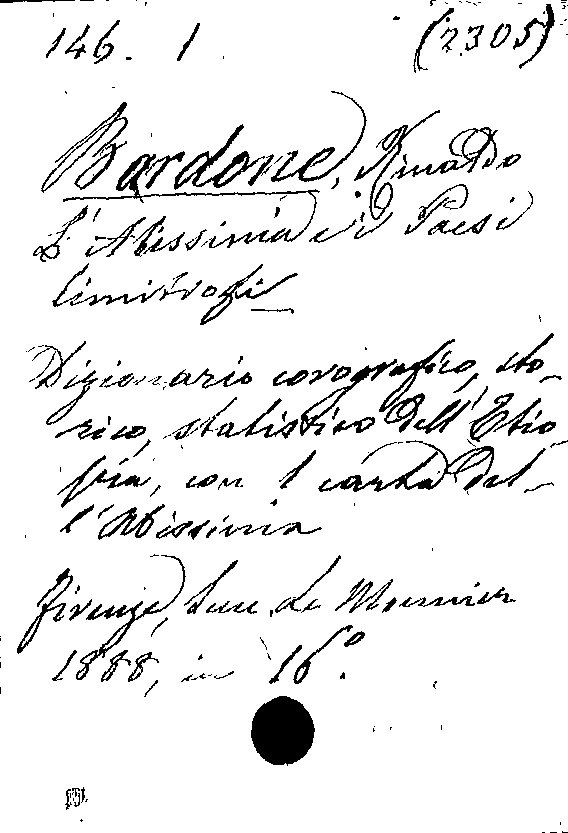 146. 1 (2305)
Bardone, Rinaldo
L'Abissinia e i Paesi
limitrofi_
Dizionario corografico, sto-
rico, statistico dell'Etio-
pia, con 1 carta del-
l'Abissinia
Firenze, Succ. Le Monnier
1888, in 16º.